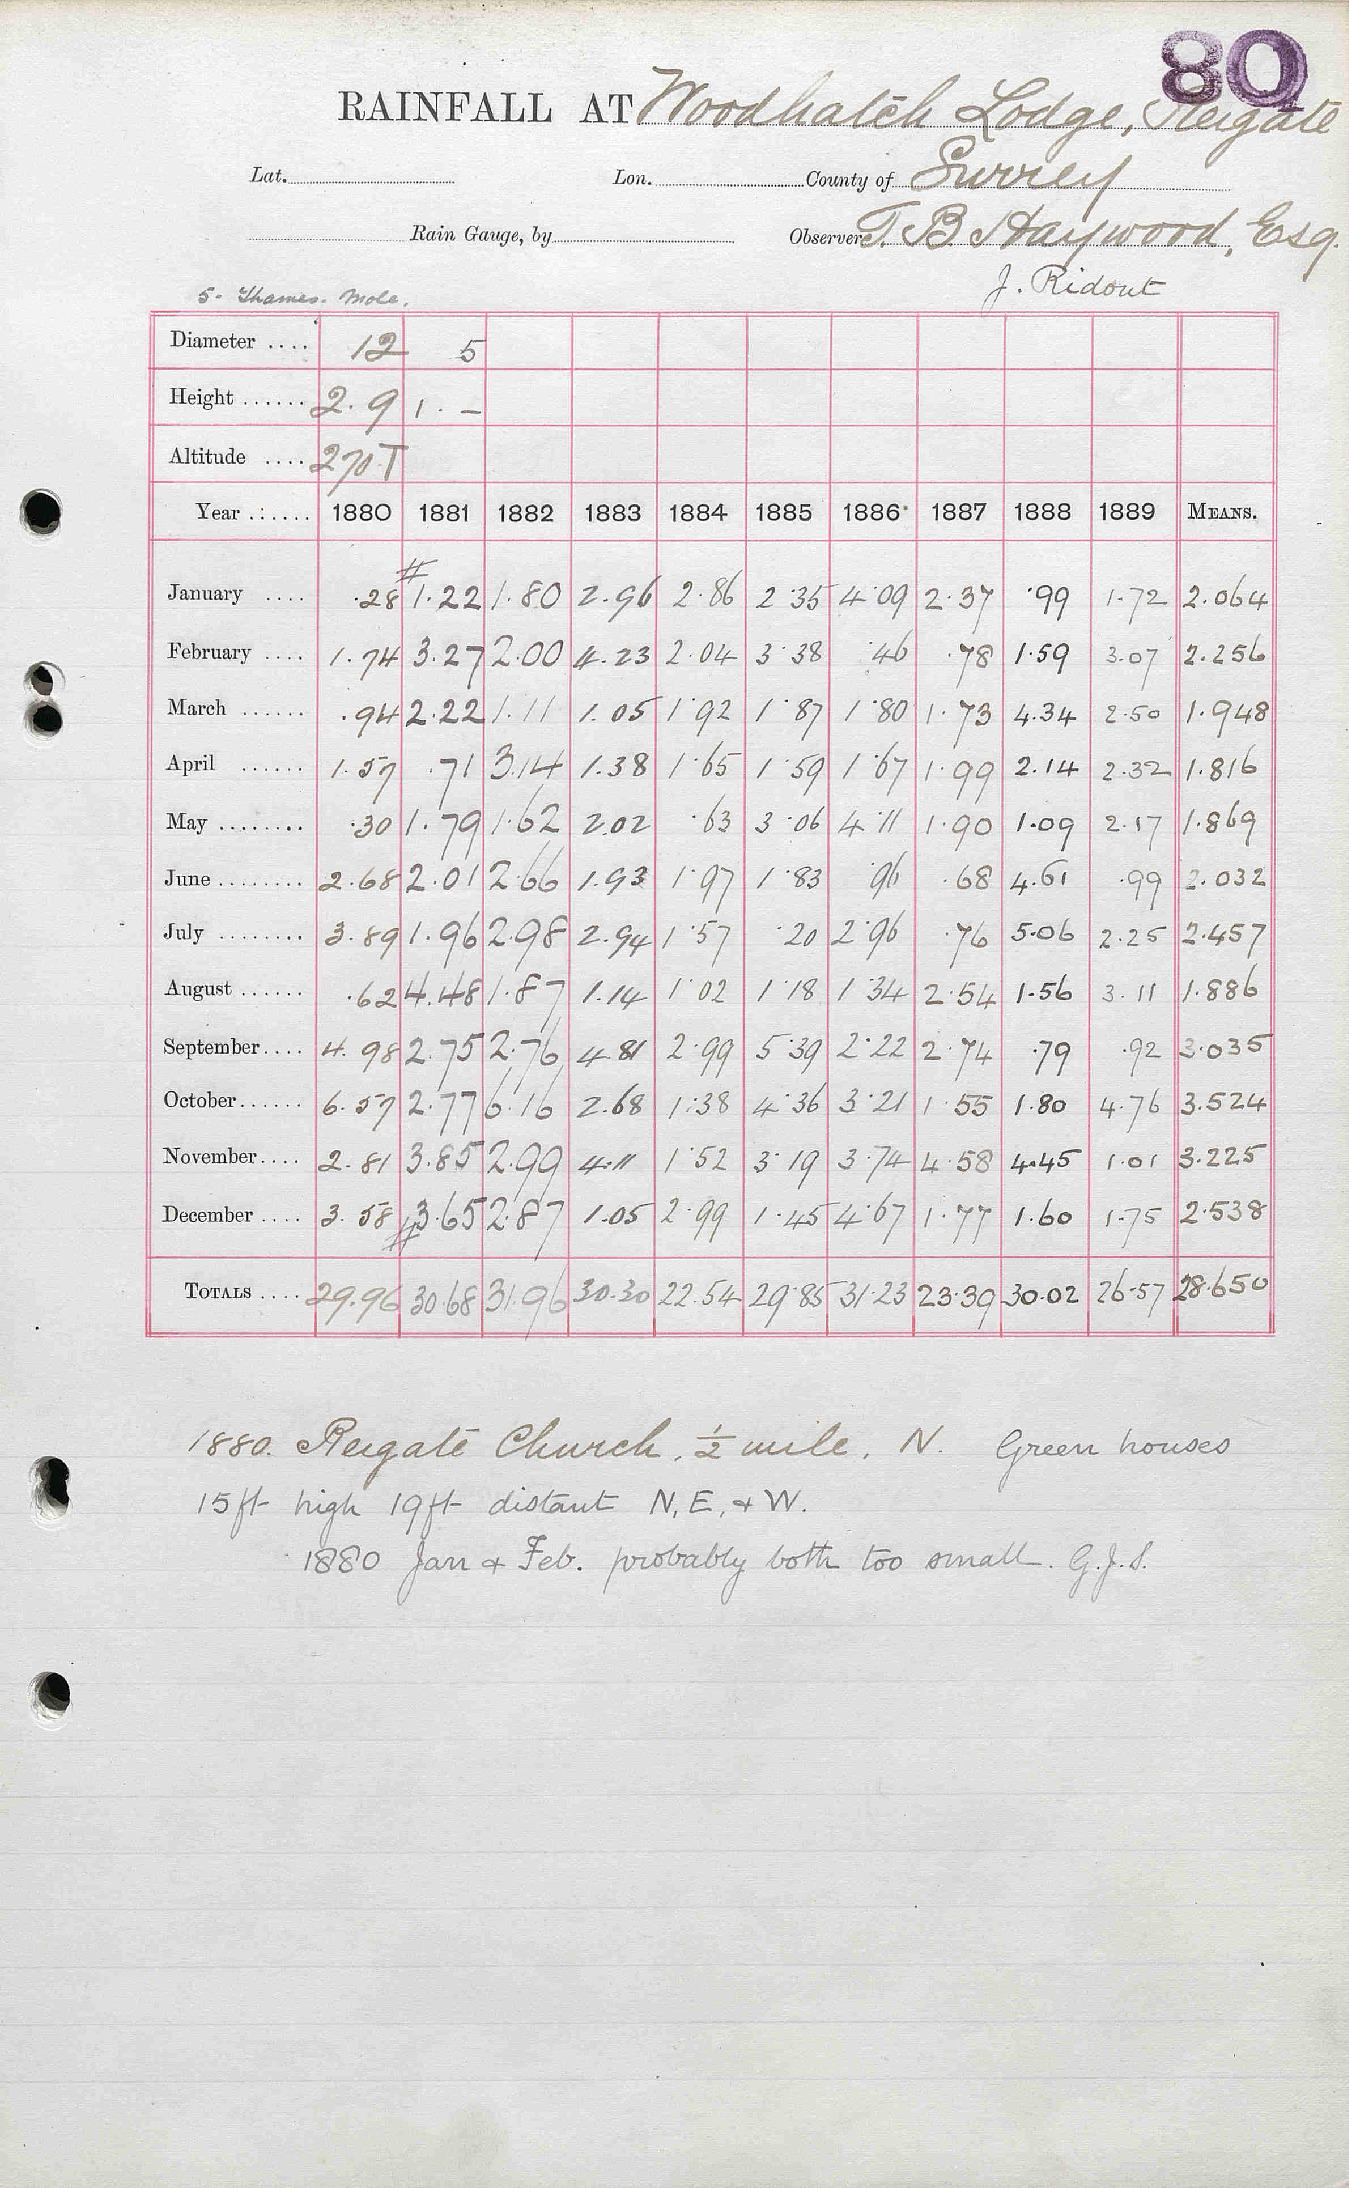 80
RAINFALL AT Woodhatch Lodge, Reigate
Lat. Lon. County of Surrey
Rain Gauge, by Observer T. B. Haywood, Esq.
J. Ridout
5. Thames. Mole.
Diameter .... 12 5
Height ...... 2.9 1.–
Altitude .... 270 T
Year ...... 1880 1881 1882 1883 1884 1885 1886 1887 1888 1889 MEANS.
January .... .28 # 1.22 1.80 2.96 2.86 2.35 4.09 2.37 .99 1.72 2.064
February .... 1.74 3.27 2.00 4.23 2.04 3.38 .46 .78 1.59 3.07 2.256
March ...... .94 2.22 1.11 1.05 1.92 1.87 1.80 1.73 4.34 2.50 1.948
April ...... 1.57 .71 3.14 1.38 1.65 1.59 1.67 1.99 2.14 2.32 1.816
May ........ .30 1.79 1.62 2.02 .63 3.06 4.11 1.90 1.09 2.17 1.869
June ........ 2.68 2.01 2.66 1.93 1.97 1.83 .96 .68 4.61 .99 2.032
July ........ 3.89 1.96 2.98 2.94 1.57 .20 2.96 .76 5.06 2.25 2.457
August ...... .62 4.48 1.87 1.14 1.02 1.18 1.34 2.54 1.56 3.11 1.886
September .... 4.98 2.75 2.76 4.81 2.99 5.39 2.22 2.74 .79 .92 3.035
October ...... 6.57 2.77 6.16 2.68 1.38 4.36 3.21 1.55 1.80 4.76 3.524
November .... 2.81 3.85 2.99 4.11 1.52 3.19 3.74 4.58 4.45 1.01 3.225
December .... 3.58 # 3.65 2.87 1.05 2.99 1.45 4.67 1.77 1.60 1.75 2.538
TOTALS .... 29.96 30.68 31.96 30.30 22.54 29.85 31.23 23.39 30.02 26.57 28.650
1880. Reigate Church, ½ mile, N. Green houses
15ft high 19ft distant N, E, + W.
1880 Jan + Feb. probably both too small. G.J.S.